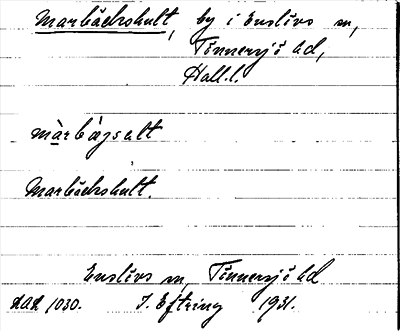 Marbäckshult, by i Enslövs sn,
Tönnersjö hd,
Hall. l.
màrbäɡselt
Marbäckshult.
Enslövs sn, Tönnersjö hd
1030. J. Eftring 1931.